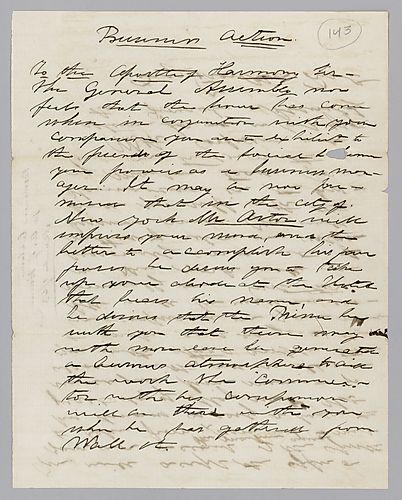 Business Action
143
To the Apostle of Harmony Sir—
The General Assembly now
feels that the hour has come
when in conjunction with your
companion you are to exhibit to
the friends of the Social
your powers as a business man-
ager. It may be now pre-
mised that in the city of
New York Mr Astor will
impress your mind, and the
better to accomplish his pur-
pose he desires you to take
up your abode at the Hotel
that bears his name, and
he desires that the
with you that there may
with more ease be generated
a business atmosphere to aid
the work the
tor with his companion
will be there with you
when he has gathered from
Wall St.